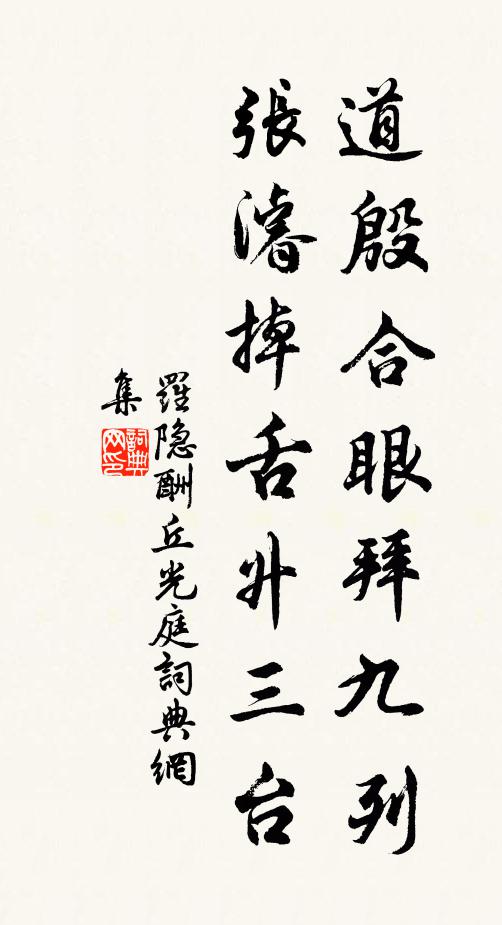 道殷合眼拜九列
張濬掉舌升三台
羅隐酬丘光庭詞典網
集
詞典
网印